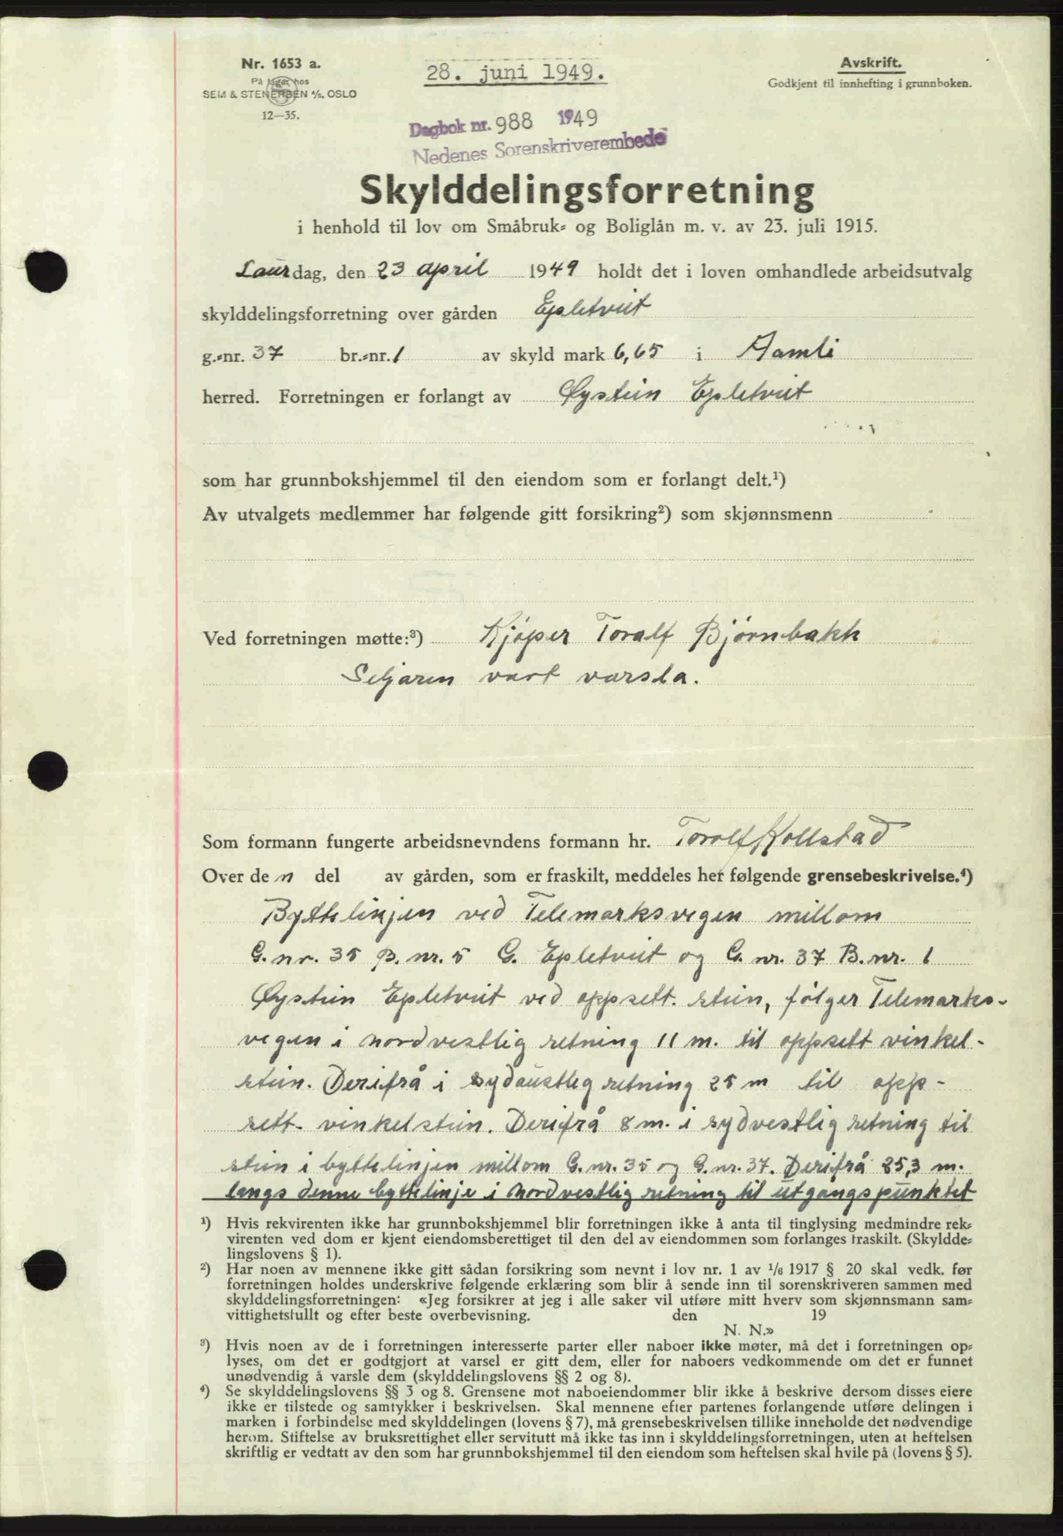 Nr. 1653 a.
På lager hos
SEM & STENERSEN A/S. OSLO
12—35.
28. juni 1949.
Avskrift.
Godkjent til innhefting i grunnboken.
Dagbok nr. 988 1949
Nedenes Sorenskriverembede
Skylddelingsforretning
i henhold til lov om Småbruk- og Boliglån m. v. av 23. juli 1915.
Laurdag, den 23 april 1949 holdt det i loven omhandlede arbeidsutvalg
skylddelingsforretning over gården Epletveit
g.-nr. 37 br.-nr. 1 av skyld mark 6,65 i Aamli
herred. Forretningen er forlangt av Øystein Epletveit
som har grunnbokshjemmel til den eiendom som er forlangt delt.¹)
Av utvalgets medlemmer har følgende gitt forsikring²) som skjønnsmenn
Ved forretningen møtte:³) Kjøper Toralf Bjørnbakk
Seljaren vart varsla.
Som formann fungerte arbeidsnevndens formann hr. Toralf Kollstad
Over den del av gården, som er fraskilt, meddeles her følgende grensebeskrivelse.⁴)
Byttelinjen ved Telemarksvegen millom
G.nr. 35 B.nr. 5 G. Epletveit og G.nr. 37 B.nr. 1
Øystein Epletveit ved oppsett. stein, følger Telemarks-
vegen i nordvestlig retning 11 m. til oppsett vinkel-
stein. Derifrå i sydaustleg retning 25 m til opp-
sett- vinkelstein. Derifrå 8 m. i sydvestlig retning til
stein i byttelinjen millom G.nr. 35 og G.nr. 37. Derifrå 25,3 m.
langs denne byttelinje i nordvestlig retning til utgangspunktet
¹) Hvis rekvirenten ikke har grunnbokshjemmel blir forretningen ikke å anta til tinglysing medmindre rek-
virenten ved dom er kjent eiendomsberettiget til den del av eiendommen som forlanges fraskilt. (Skyldde-
lingslovens § 1).
²) Har noen av mennene ikke gitt sådan forsikring som nevnt i lov nr. 1 av 1/6 1917 § 20 skal vedk. før
forretningen holdes underskrive følgende erklæring som blir å sende inn til sorenskriveren sammen med
skylddelingsforretningen: «Jeg forsikrer at jeg i alle saker vil utføre mitt hverv som skjønnsmann sam-
vittighetsfullt og efter beste overbevisning. den 19
N. N.»
³) Hvis noen av de i forretningen interesserte parter eller naboer ikke møter, må det i forretningen op-
lyses, om det er godtgjort at varsel er gitt dem, eller for naboers vedkommende om det er funnet
unødvendig å varsle dem (skylddelingslovens §§ 2 og 8).
⁴) Se skylddelingslovens §§ 3 og 8. Grensene mot naboeiendommer blir ikke å beskrive dersom disses eiere
ikke er tilstede og samtykker i beskrivelsen. Skal mennene efter partenes forlangende utføre delingen i
marken i forbindelse med skylddelingen (lovens § 7), må grensebeskrivelsen tillike inneholde det nødvendige
herom. Stiftelse av bruksrettighet eller servitutt må ikke tas inn i skylddelingsforretningen, uten at heftelsen
skriftlig er vedtatt av den som har grunnbokshjemmel til den eiendom som heftelsen skal hvile på (lovens § 5).